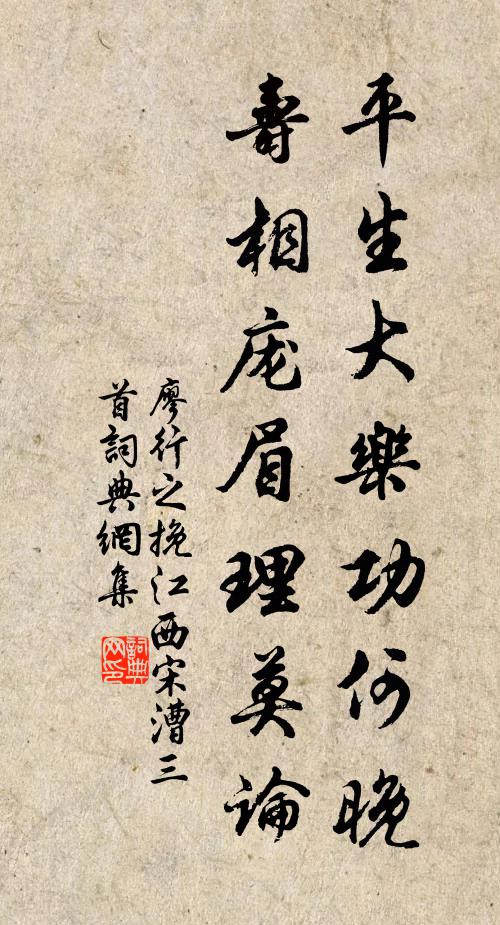 平生大樂功何晚
壽相庞眉理莫論
廖行之挽江西宋漕三
首詞典網集
詞典网印